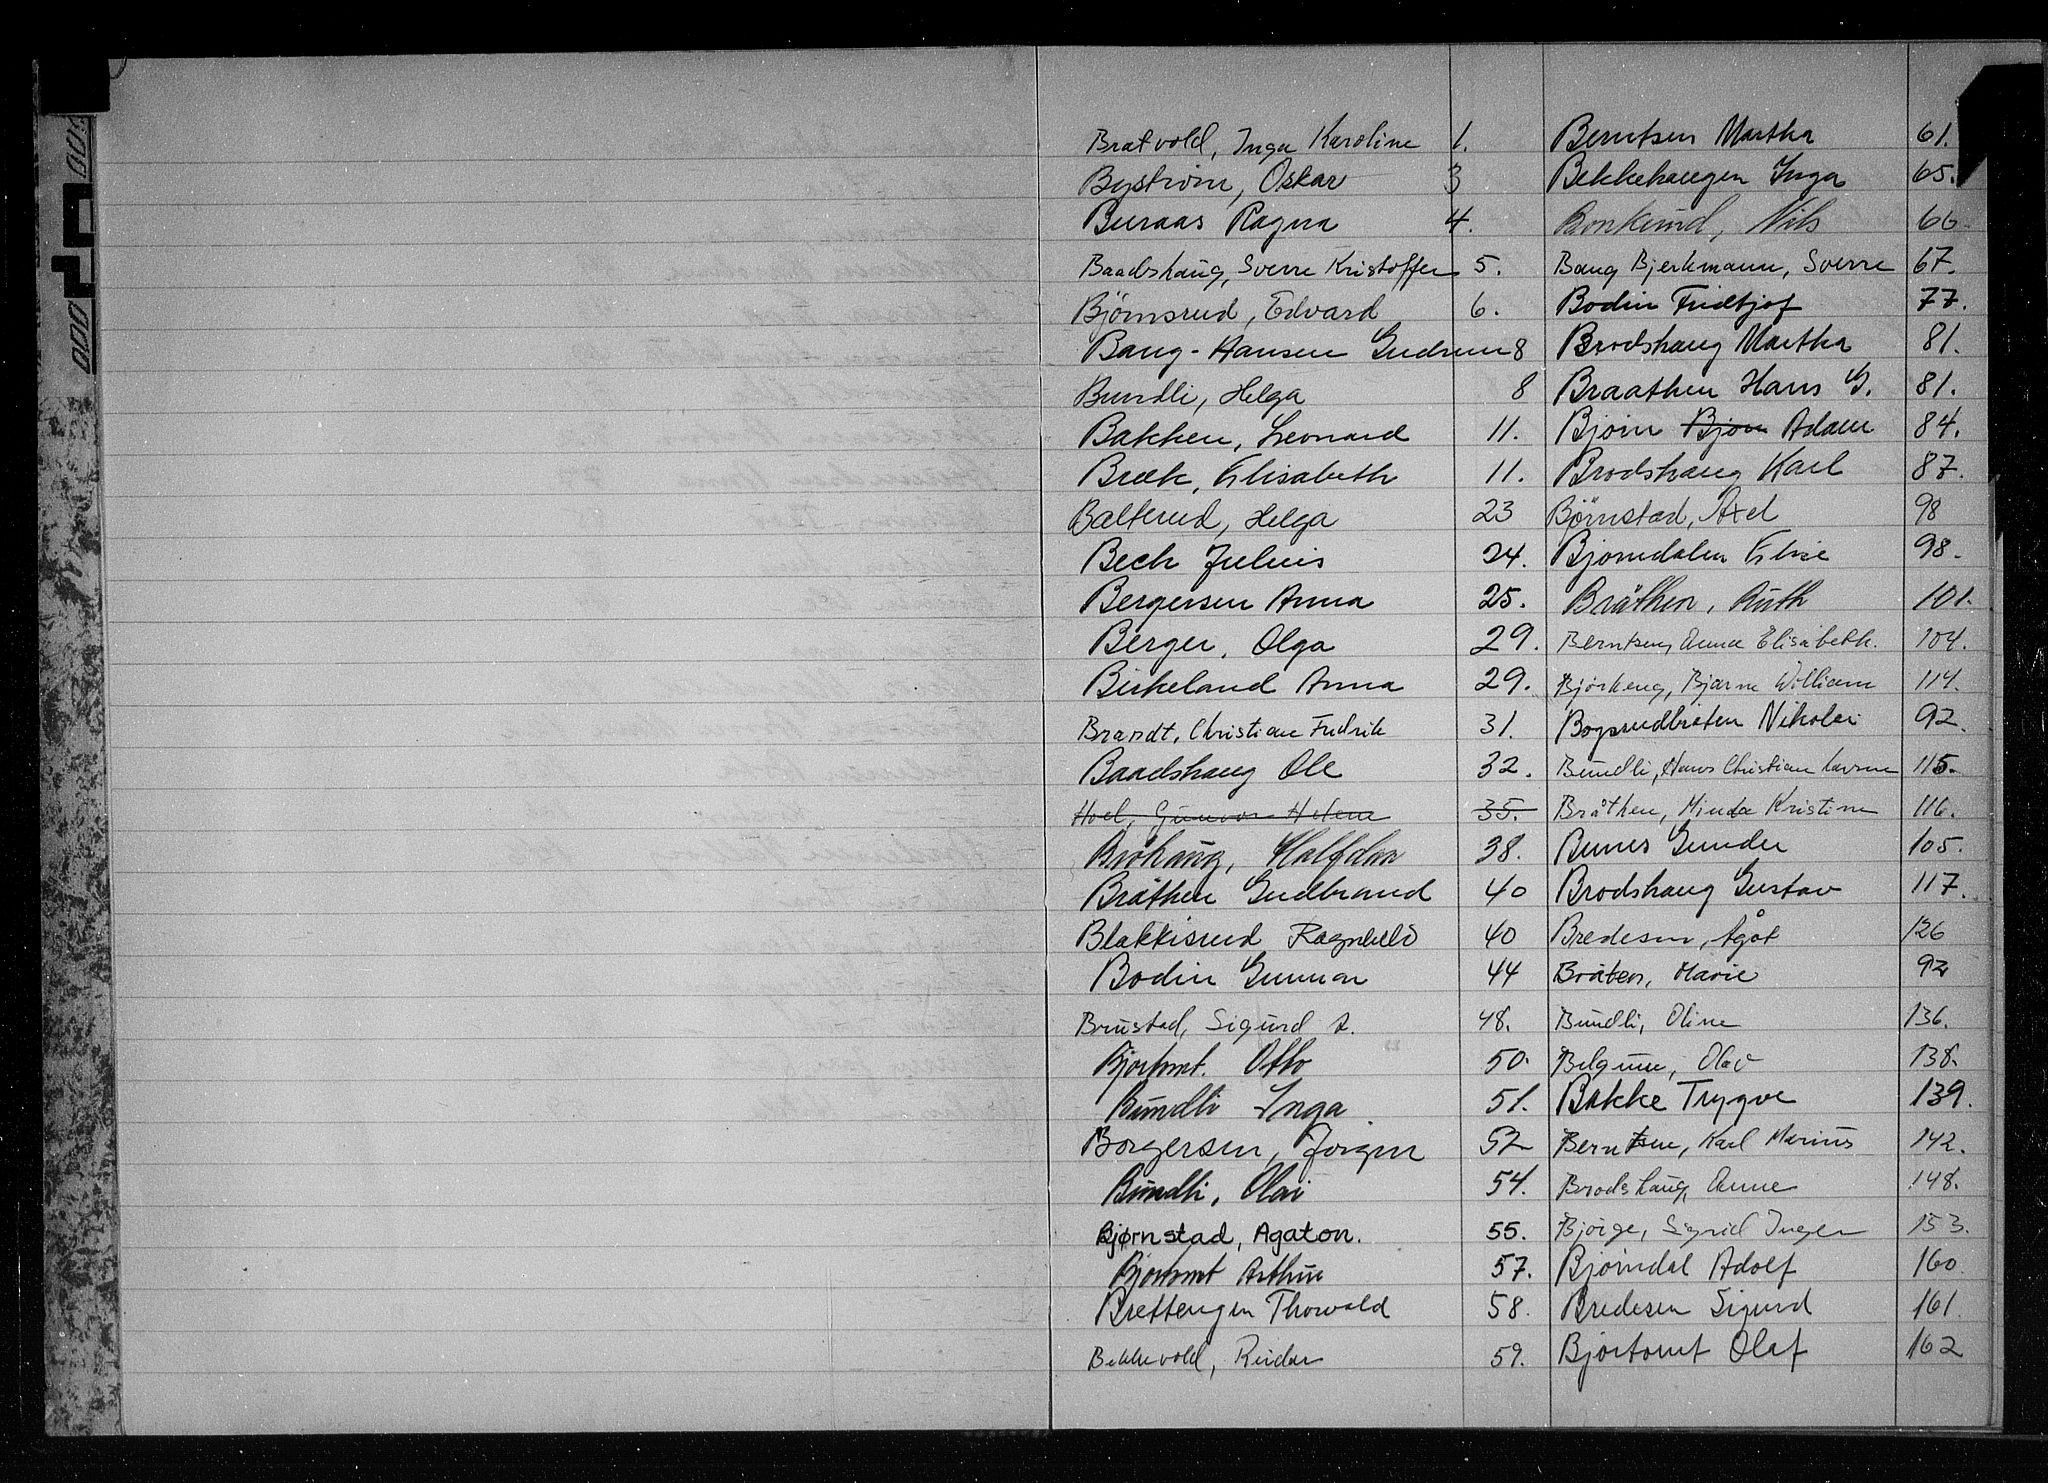 Bratvold, Inga Karoline 1.
Bystrøm, Oskar 3
Buraas Ragna 4.
Baadshaug, Sverre Kristoffer 5.
Bjørnsrud, Edvard 6.
Baug-Hansen Gudrun 8
Bundli, Helga 8
Bakken, Leonard 11.
Bræk, Elisabeth 11.
Balterud, Helga 23
Bech Julius 24.
Bergersen Anna 25.
Berger, Olga 29.
Birkeland Anna 29.
Brandt, Christian Fredrik 31.
Baadshaug Ole 32.
Hoel, Gunvor Helene 35.
Brohaug, Halfdan 38.
Bråthen Gudbrand 40
Blakkisrud Ragnhild 40
Bodin Gunnar 44
Brustad, Sigurd A. 48.
Bjortomt. Otto 50.
Bundli Inga 51.
Borgersen, Jörgen 52
Bundli, Olai 54.
Bjørnstad, Agaton. 55.
Bjortomt Arthur 57.
Brettengen Thorvald 58.
Bekkevold, Reidar 59.
Berntsen Martha 61.
Bekkehaugen Inga 65.
Nils 66.
Baug Bjerkmann, Sverre 67.
Bodin Fridtjof 77.
Brodshaug Martha 81.
Braathen Hans G. 81.
Bjørn Bjørn Adam 84.
Brodshaug Karl 87.
Bjørnstad, Axel 98
Bjørndalen Elise 98.
Bråthen, Ruth 101.
Berntsen, Anna Elisabeth. 104.
Bjørkeng, Bjarne William 114.
Bogsrudbråten Nikolai 92.
Bundli, Hans Christian Laurin 115.
Bråthen, Minda Kristine 116.
Bunes Gunder 105.
Brodshaug Gustav 117.
Bredesen, Ågot 126
Bråten, Marie 92
Bundli, Oline 136.
Belgum, Olav 138.
Bakke Trygve 139.
Berntsen, Karl Marius 142.
Brodshaug, Anne 148.
Bjørge, Sigrid Inger 153.
Bjørndal Adolf 160
Bredesen Sigurd 161.
Bjortomt Olaf 162